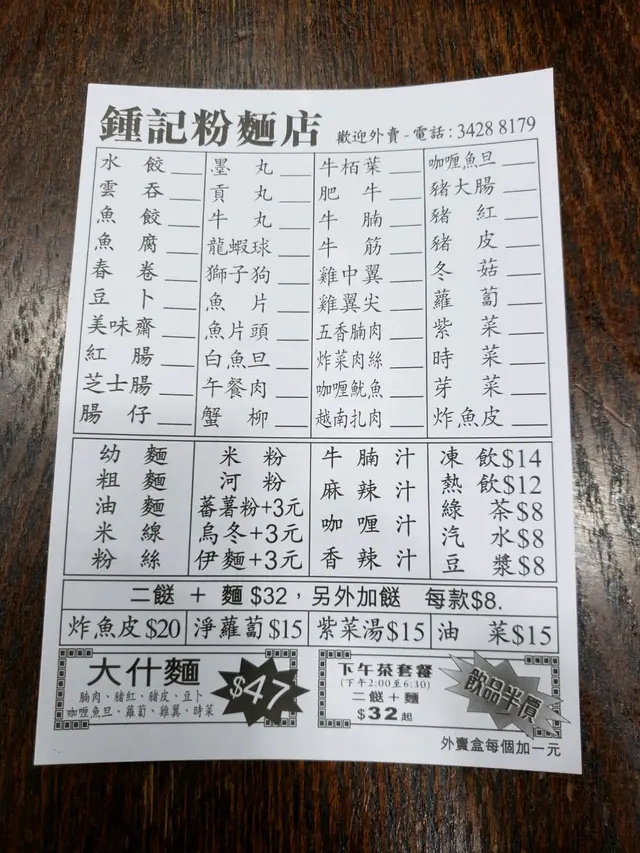 鍾記粉麵店 歡迎外賣-電話:3428 8179
水餃 墨丸 牛栢葉 咖喱魚旦
雲吞 貢丸 肥牛 豬大腸
魚餃 牛丸 牛腩 豬紅
魚腐 龍蝦球 牛筋 豬皮
春卷 獅子狗 雞中翼 冬菇
豆卜 魚片 雞翼尖 蘿蔔
美味齋 魚片頭 五香腩肉 紫菜
紅腸 白魚旦 炸菜肉絲 時菜
芝士腸 午餐肉 咖喱魷魚 芽菜
腸仔 蟹柳 越南扎肉 炸魚皮
幼麵 米粉 牛腩汁 凍飲$14
粗麵 河粉 麻辣汁 熱飲$12
油麵 蕃薯粉+3元 咖喱汁 綠茶$8
米線 烏冬+3元 香辣汁 汽水$8
粉絲 伊麵+3元 豆漿$8
二餸 + 麵 $32,另外加餸 每款$8.
炸魚皮$20 淨蘿蔔$15 紫菜湯$15 油菜$15
大什麵
腩肉、豬紅、豬皮、豆卜
咖喱魚旦、蘿蔔、雞翼、時菜
$47
下午茶套餐
(下午2:00至6:30)
二餸+麵
$32起
飲品半價
外賣盒每個加一元